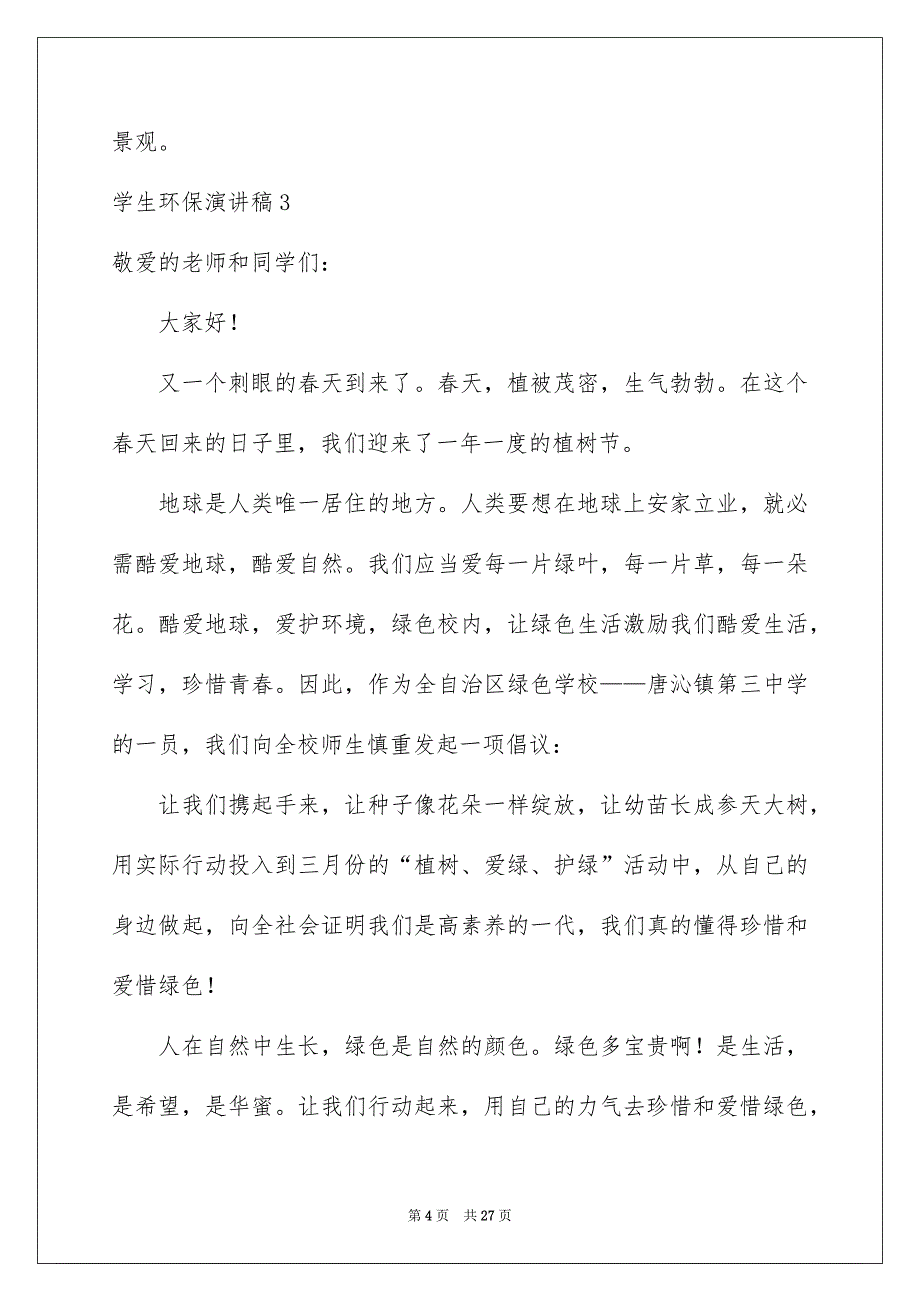 景观。
学生环保演讲稿3
敬爱的老师和同学们：
大家好！
又一个刺眼的春天到来了。春天，植被茂密，生气勃勃。在这个
春天回来的日子里，我们迎来了一年一度的植树节。
地球是人类唯一居住的地方。人类要想在地球上安家立业，就必
需酷爱地球，酷爱自然。我们应当爱每一片绿叶，每一片草，每一朵
花。酷爱地球，爱护环境，绿色校内，让绿色生活激励我们酷爱生活，
学习，珍惜青春。因此，作为全自治区绿色学校——唐沁镇第三中学
的一员，我们向全校师生慎重发起一项倡议：
让我们携起手来，让种子像花朵一样绽放，让幼苗长成参天大树，
用实际行动投入到三月份的“植树、爱绿、护绿”活动中，从自己的
身边做起，向全社会证明我们是高素养的一代，我们真的懂得珍惜和
爱惜绿色！
人在自然中生长，绿色是自然的颜色。绿色多宝贵啊！是生活，
是希望，是华蜜。让我们行动起来，用自己的力气去珍惜和爱惜绿色，
第 4 页 共 27 页